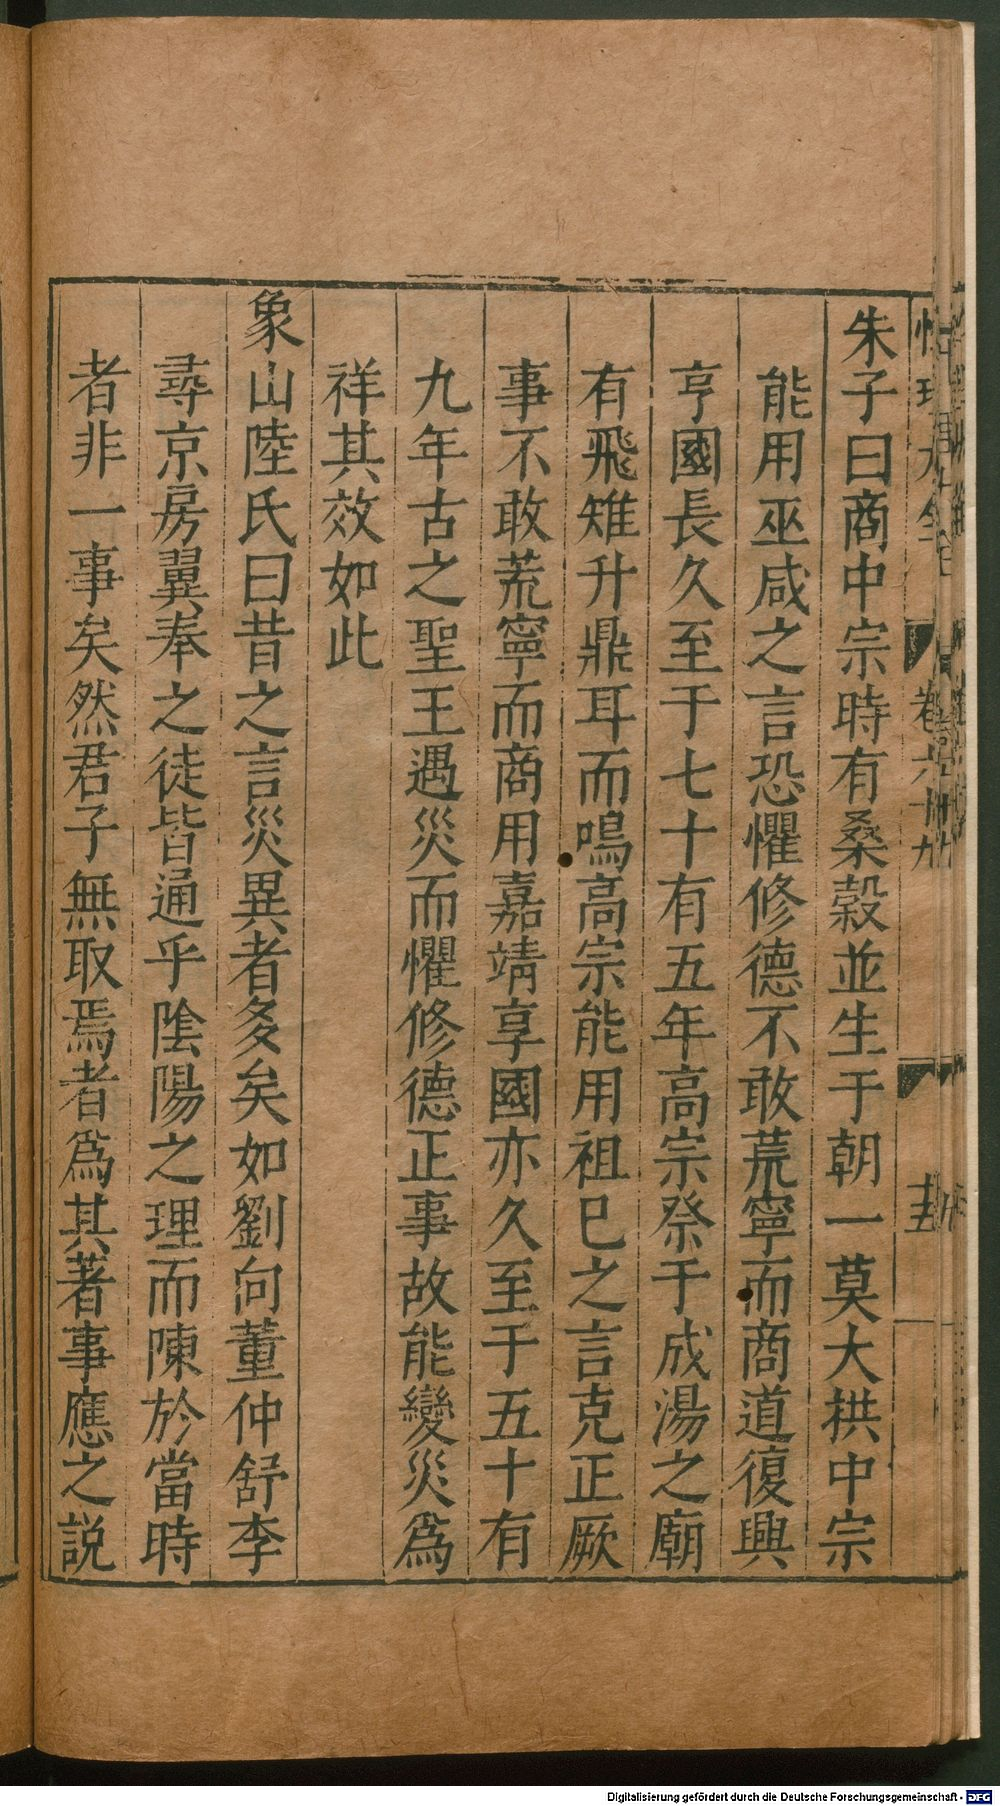 朱子曰商中宗時有桑榖並生于朝一莫大拱中宗
能用巫咸之言恐懼修德不敢荒寧而商道復興
亨國長久至于七十有五年高宗祭于成湯之廟
有飛雉升鼎耳而鳴高宗能用祖已之言克正厥
事不敢荒寧而商用嘉靖享國亦久至于五十有
九年古之聖王遇災而懼修德正事故能變災爲
祥其效如此
象山陸氏曰昔之言災異者多矣如劉向董仲舒李
尋京房翼奉之徒皆通乎陰陽之理而陳於當時
者非一事矣然君子無取焉者爲其著事應之説
Digitalisierung gefördert durch die Deutsche Forschungsgemeinschaft - DFG